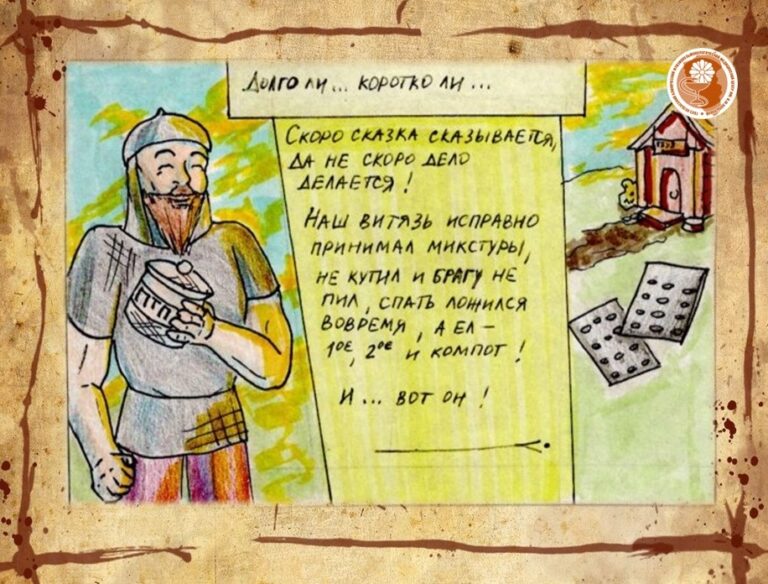 Долго ли ... коротко ли ...
Скоро сказка сказывается,
да не скоро дело
делается !
Наш витязь исправно
принимал микстуры,
не кутил и брагу не
пил, спать ложился
вовремя, а ел –
1ое, 2ое и компот !
И ... вот он !
ПТП